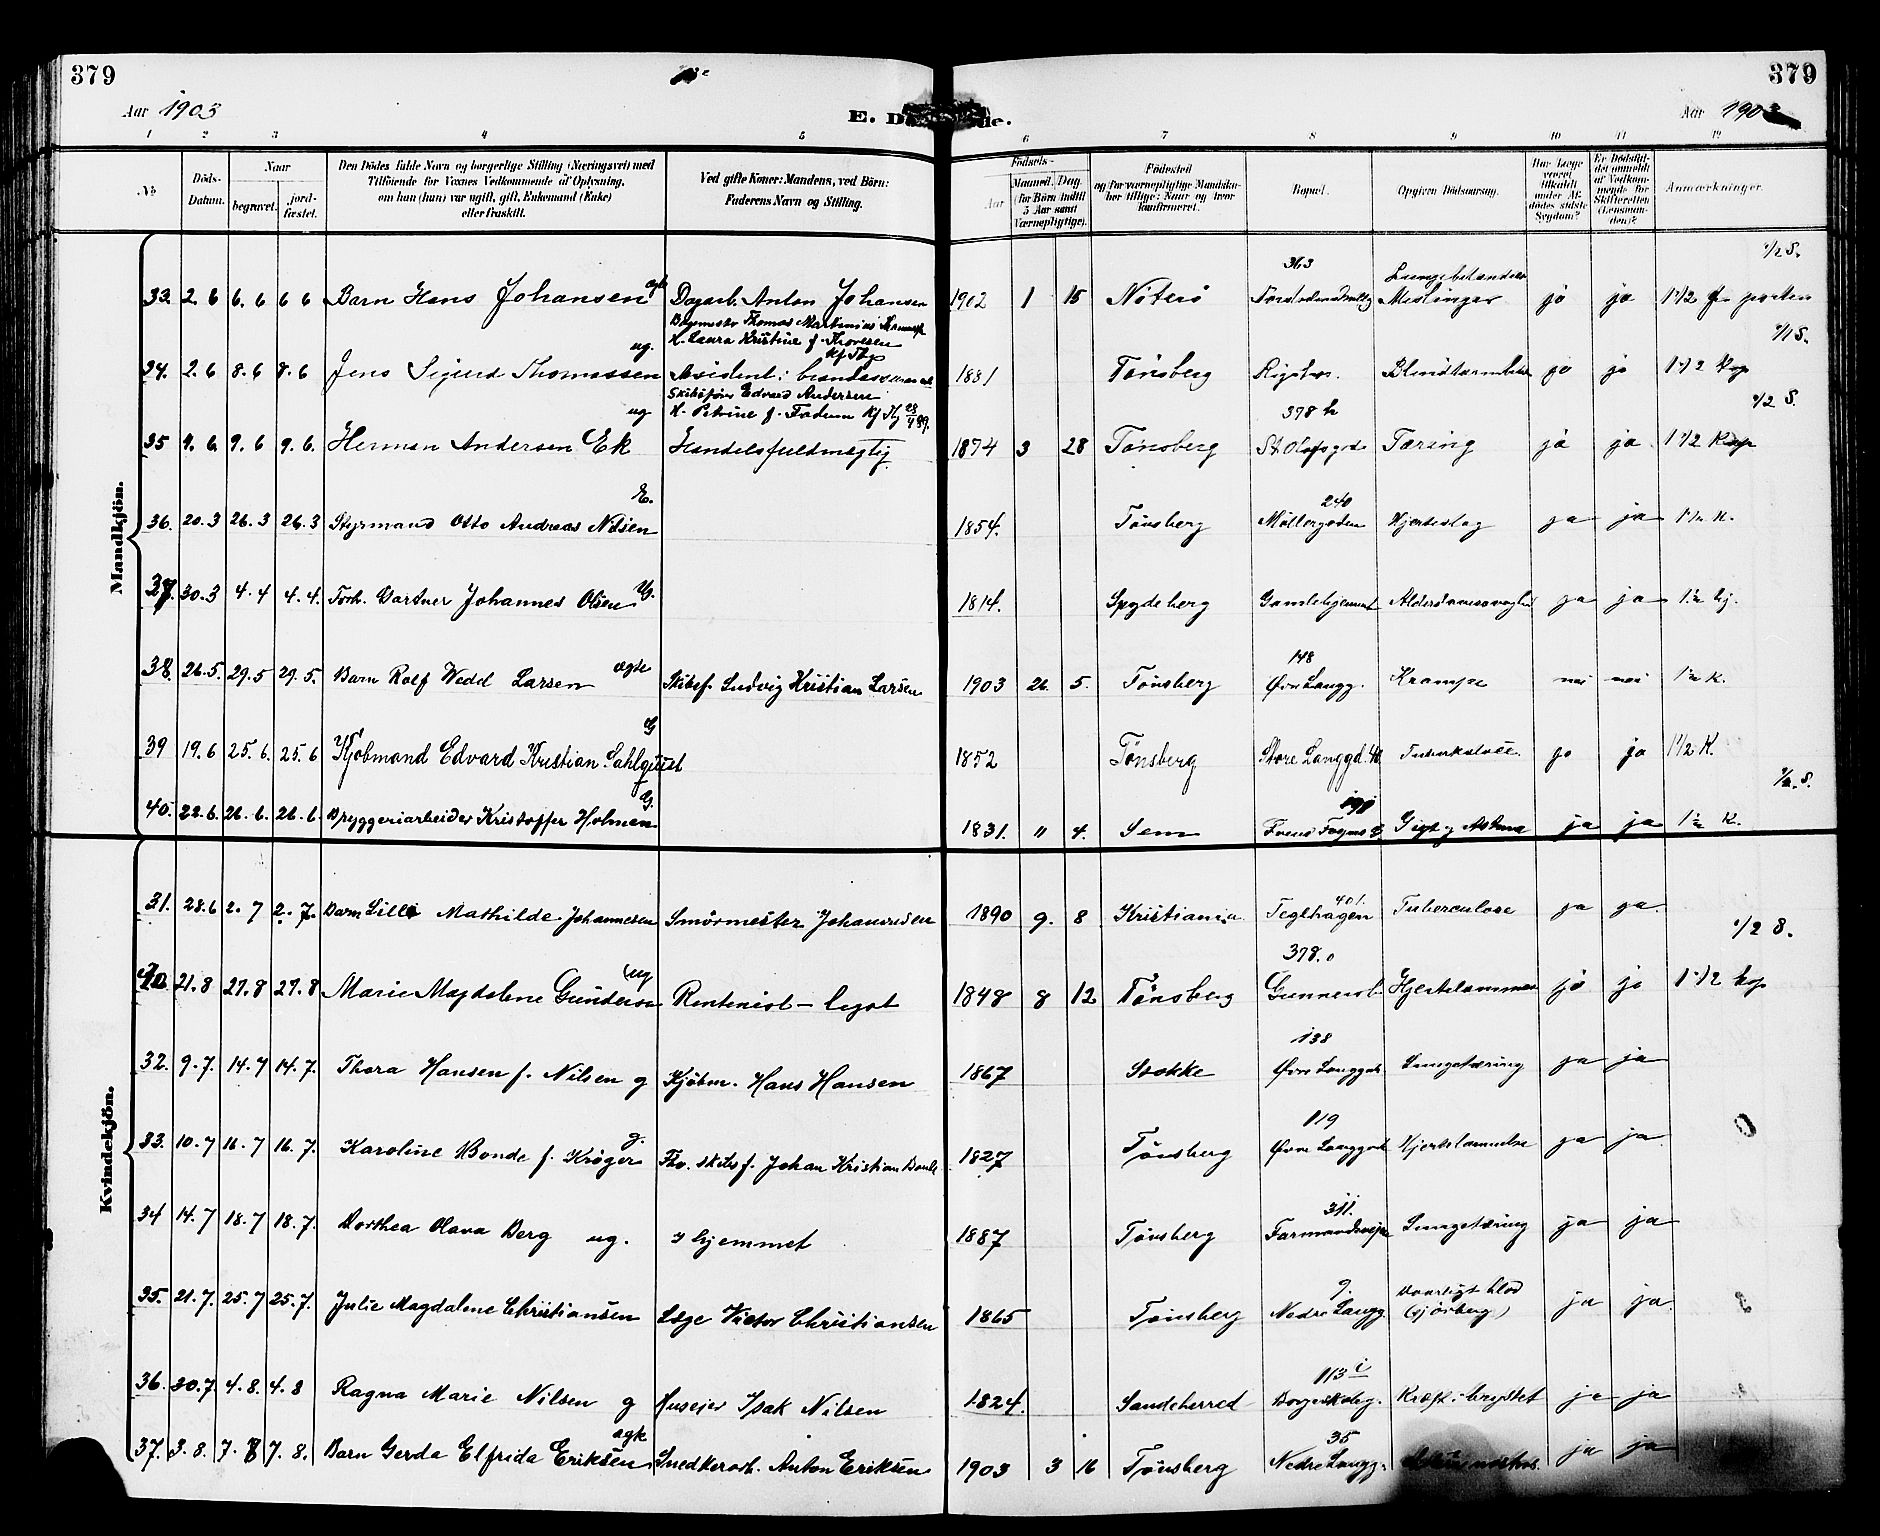 379
379
Aar 1903
E. D
de.
Aar 190
1 2 3 4 5 6 7 8 9 10 11 12
No
Döds-Datum.
Naar
begravet.
jordfæstet.
Den Dödes fulde Navn og borgerlige Stilling (Næringsvei) med Tilföiende for Voxnes Vedkommende af Oplysning, om han (hun) var ugift, gift, Enkemand (Enke) eller fraskilt.
Ved gifte Koner: Mandens, ved Börn: Faderens Navn og Stilling.
Födsels-
Aar
Maaned. Dag.
(for Börn indtil 5 Aar samt Værnepligtige).
Födested
og for værnepligtige Mandskaber tillige: Naar og hvor konfirmeret.
Bopæl.
Opgiven Dödsaarsag.
Har Læge været tilkaldt under Afdödes sidste Sygdom?
Er Dödsfaldet anmeldt af Vedkommende for Skifteretten (Lensmanden)?
Anmærkninger.
Mandkjön.
33. 2.6 6.6 6 6 Barn Hans Johansen ægte Dagarb. Anton Johansen 1902 1 15 Nöterö 363 Meslinger ja ja
1/2 S.
Thomas Martinius
H. Laura Kristine f. Thovesen
2.6 8.6 8.6 Jens Sigurd Thomassen ug. Assistent i 1881 Tönsberg ja ja 1 1/2 Kop
1/1 S.
Skibsförer Edvard Andersen
35 9.6 9.6 9.6. Herman Andersen Ek ug Handelsfuldmægtig 1874 3 28 Tönsberg 378 h St Olafsgd Tæring ja ja 1 1/2 Kop
1/2 S.
36. 20.3 26.3 26.3 Styrmand Otto Andreas Nilsen E. 1854. Tönsberg 240 Möllergaden Hjerteslag ja ja 1 1/2 K.
37. 30.3 4.4 4.4. Forh. Gartner Johannes Olsen 1814. Spydeberg Gamlehjemmet ja ja
38. 26.5. 29.5 29.5. Barn Rolf Wedd Larsen ægte Skibsf. Ludvig Kristian Larsen 1903 26. 5. Tönsberg 148 Övre Langg. Krampe nei nei 1 1/2 K.
39 19.6 25.6. 25.6 Kjöbmand Edvard Kristian Sahlquist G 1852 Tönsberg Store Langgd. Tuberkulose ja ja 1 1/2 K.
40. 22.6. 26.6. 26.6. Bryggeriarbeider Kristoffer Holmen G. 1831. " 4. Sem Gigt og Astma ja ja 1 1/2 K.
1/2. S.
Kvindekjön.
31. 28.6 2.7 2.7. Barn Lilli Mathilde Johannesen Smörmester Johannesen 1890 9. 8 Kristiania 401. Teglhagen Tuberculose ja ja.
1/2 S.
21.8 27.8 27.8 Marie Magdalene Gundersen ug Rentenist - legat 1848 8 12 Tönsberg 378.o Gunnersb. Hjertelammelse ja ja 1 1/2 kop
32. 9.7. 14.7 14.7. Thora Hansen f. Nilsen g Kjöbm. Hans Hansen 1867 Stokke 138 Övre Langgade Lungetæring ja ja
33. 10.7 16.7 16.7. Karoline Bonde f. Kröger g. Fhv. skibsf. Johan Kristian Bonde 1827 Tönsberg 119 Övre Langgade Hjertelammelse ja ja
34 14.7 18.7 18.7. Dorthea Olava Berg ug. i hjemmet 1887 Tönsberg 311. Farmandsveien Lungetæring ja ja
35. 21.7. 25.7 25.7. Julie Magdalene Christiansen Læge Victor Christiansen 1865 Tönsberg 9. Nedre Langg. Daarligt blod ja ja.
36. 30.7. 4.8. 4.8 Ragna Marie Nilsen g Husejer Isak Nilsen 1824. Sandeherred 113 i Borgeskoleg. Kræft i brystet ja ja
37. 3.8. 7.8 7.8. Barn Gerda Elfrida Eriksen ægte Snedkerarb. Anton Eriksen 1903 3 16 Tönsberg 35 Nedre Langg. ja ja